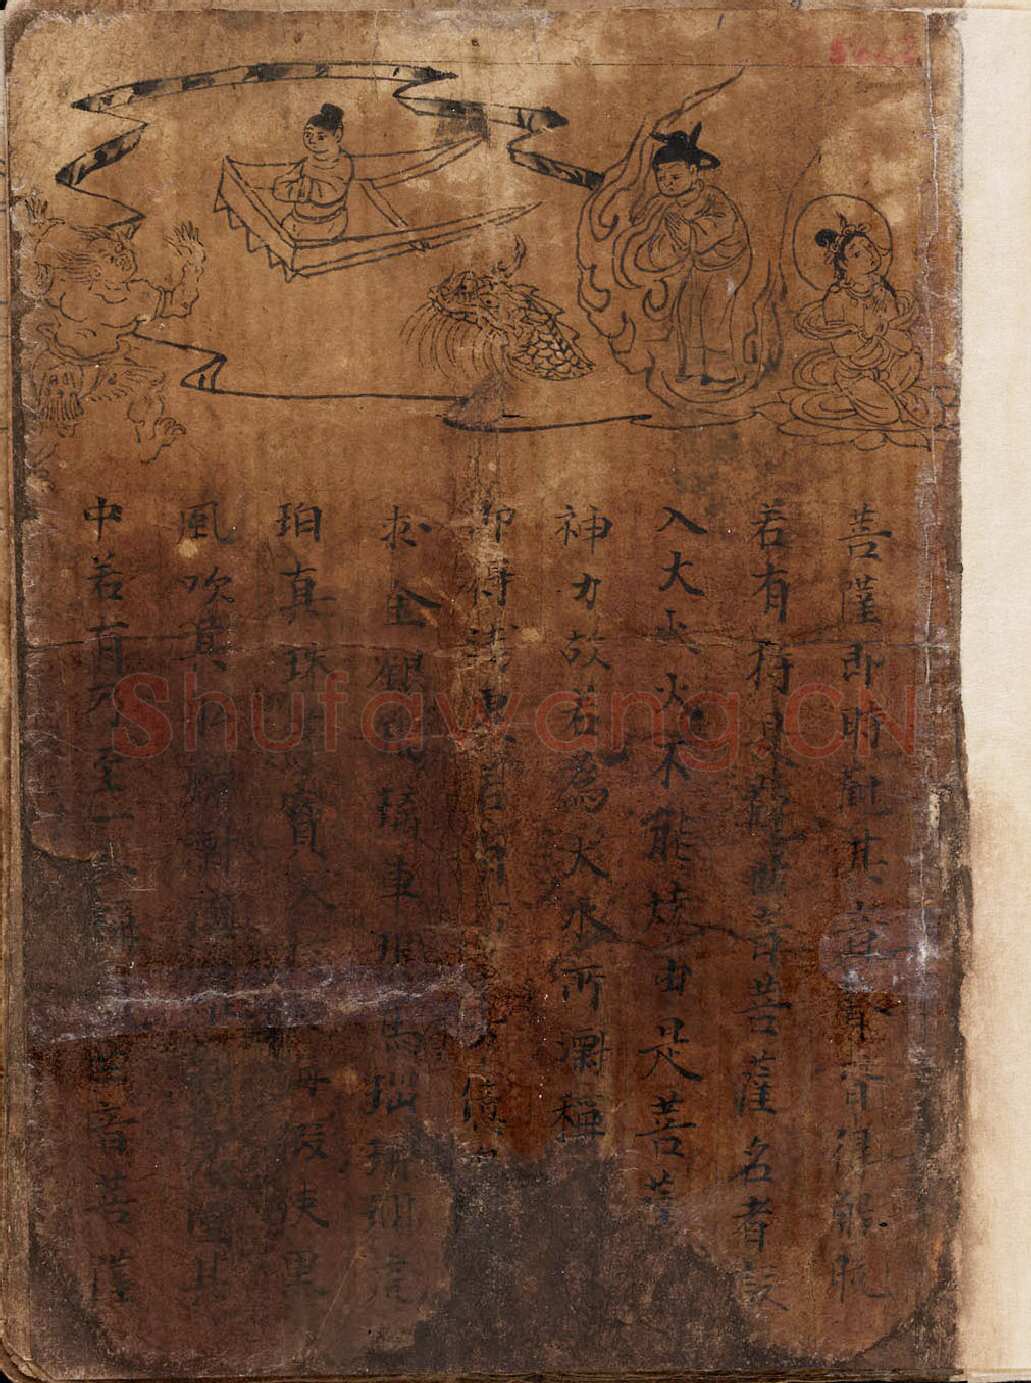 菩薩即時觀其音聲皆得解脫
若有持是觀世音菩薩名者設
入大火火不能燒由是菩薩
神力故若為大水所漂稱
即得淺處若有百千萬億
求金銀琉璃車璖馬瑙珊瑚虎
珀真珠等寶入於大海假使黑
風吹其船舫漂墮羅剎鬼國其
中若有乃至一人稱觀世音菩薩
Shufawang.CN